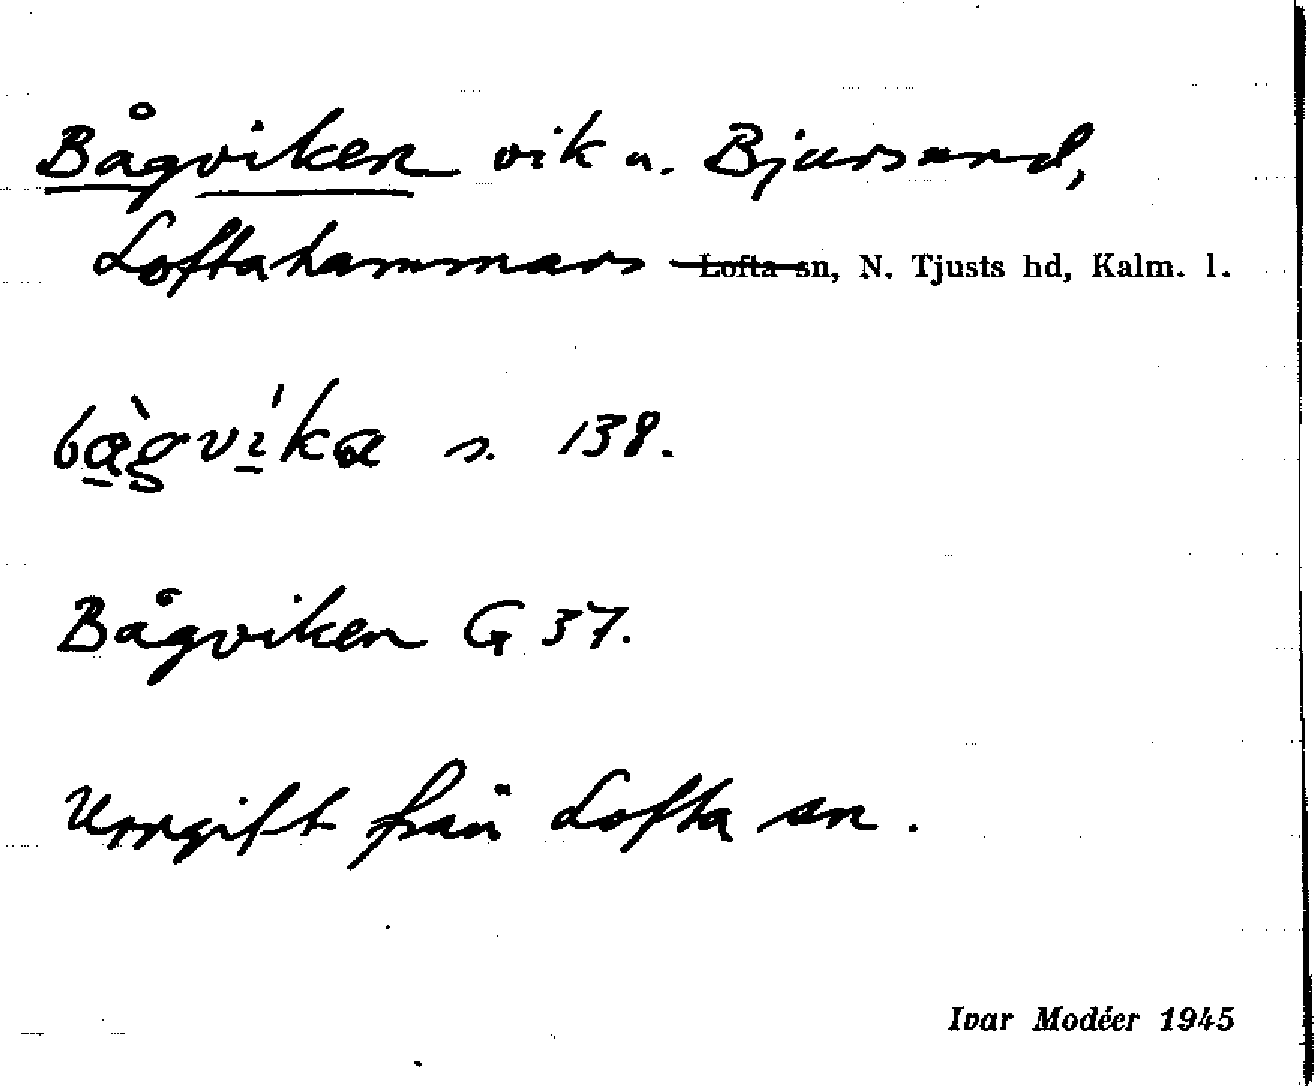 Bågviken vik u. Bjursund,
Loftahammars Lofta sn, N. Tjusts hd, Kalm. l.
s. 138.
Bågviken G 37.
Uppgift från Lofta sn.
Ivar Modéer 1945